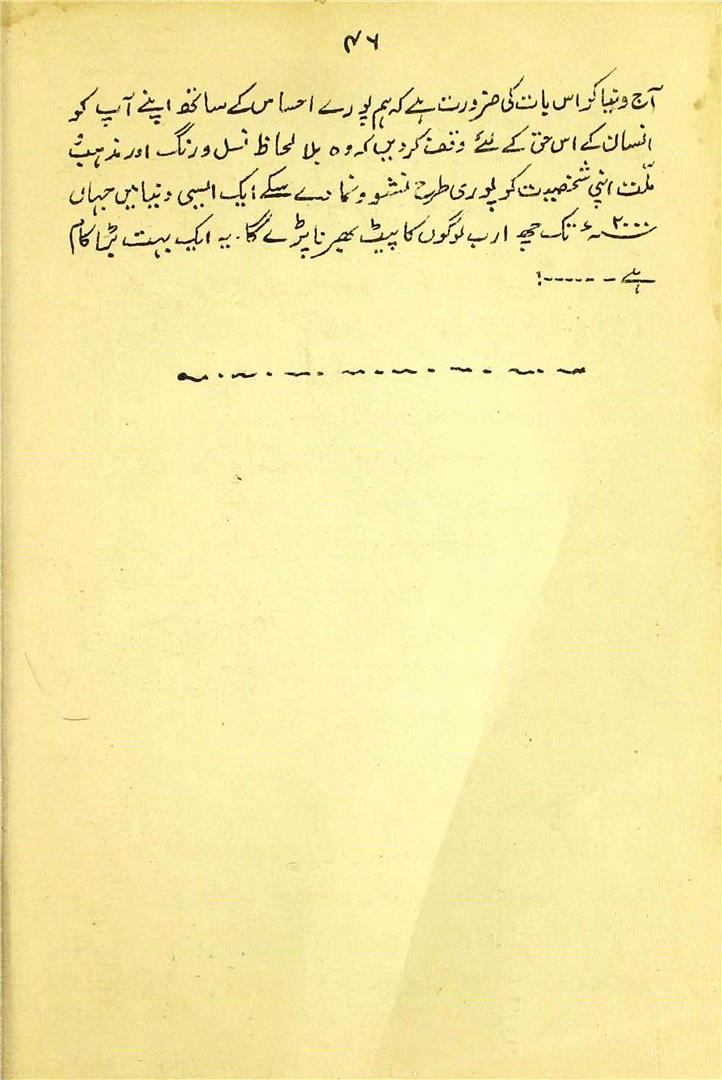 ۴۶
آج دنیا کو اس بات کی ضرورت ہے کہ ہم پورے احساس کے ساتھ اپنے آپ کو
انسان کے اس حق کے لئے وقف کردیں کہ وہ بلا لحاظ نسل و رنگ اور مذہب و
ملّت اپنی شخصیت کو پوری طرح نشوونما دے سکے ایک ایسی دنیا میں جہاں
۲۰۰۰ء تک چھ ارب لوگوں کا پیٹ بھرنا پڑے گا۔ یہ ایک بہت بڑا کام
ہے ------!